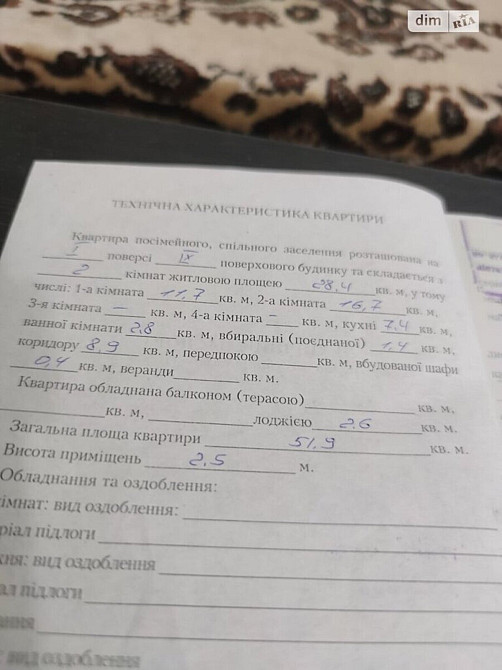 dim RIA
ТЕХНІЧНА ХАРАКТЕРИСТИКА КВАРТИРИ
Квартира посімейного, спільного заселення розташована на
I поверсі IX поверхового будинку та складається з
2 кімнат житловою площею 28,4 кв. м, у тому
числі: 1-а кімната 11,7 кв. м, 2-а кімната 16,7 кв. м,
3-я кімната – кв. м, 4-а кімната – кв. м, кухні 7,4 кв. м,
ванної кімнати 2,8 кв. м, вбиральні (поєднаної) 1,4 кв. м,
коридору 8,9 кв. м, передпокою кв. м, вбудованої шафи
0,4 кв. м, веранди кв. м.
Квартира обладнана балконом (терасою) кв. м,
кв. м, лоджією 2,6 кв. м.
Загальна площа квартири 51,9 кв. м.
Висота приміщень 2,5 м.
Обладнання та оздоблення:
кімнат: вид оздоблення:
підлоги
вид оздоблення
підлоги
вид оздоблення